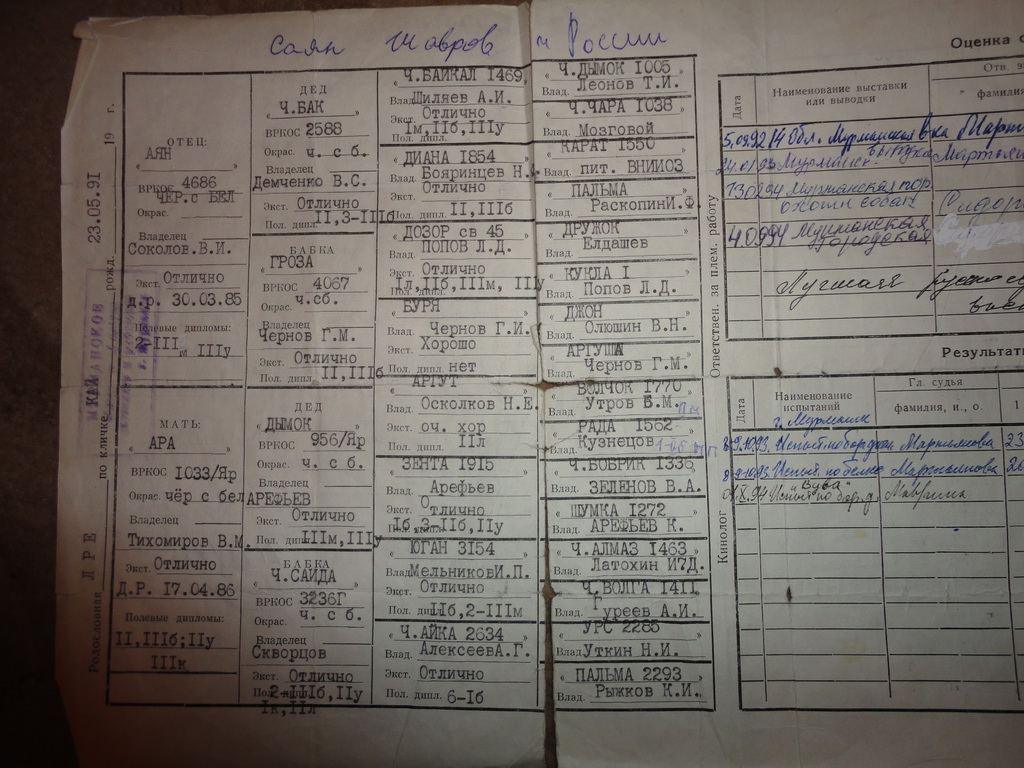 Саян Шавров ч России
Родословная ЛРЕ по кличке КАЙ рожд. 23.05.91 19 г.
ОТЕЦ:
АЯН
ВРКОС 4686
ЧЕР.с БЕЛ
Окрас.
Владелец
Соколов.В.И.
Экст. Отлично
д.р. 30.03.85
Полевые дипломы:
2-III и IIIу
МАТЬ:
АРА
ВРКОС 1033/Яр
Окрас. чёр с бел
Владелец
Тихомиров В.М.
Экст. Отлично
Д.Р. 17.04.86
Полевые дипломы:
II,IIIб;IIу
IIIк
ДЕД
Ч.БАК
ВРКОС 2588
Окрас. ч. с б.
Владелец
Демченко В.С.
Экст. Отлично
Пол. дипл. II,3-IIIб
БАБКА
ГРОЗА
ВРКОС 4067
Окрас. ч.сб.
Владелец
Чернов Г.М.
Экст. Отлично
Пол. дипл. II,IIIб
ДЕД
ДЫМОК
ВРКОС 956/Яр
Окрас. ч. с б.
Владелец
АРЕФЬЕВ
Экст. Отлично
Пол. дипл. IIIм,IIIу
БАБКА
Ч.САИДА
ВРКОС 3236Г
Окрас. ч. с б.
Владелец
Скворцов
Экст. Отлично
Пол. дипл. 2-IIIб,IIу
Iк,IIл
Ч.БАЙКАЛ 1469
Влад. Шиляев А.И.
Экст. Отлично
Iм,IIб,IIIу
Пол. дипл.
ДИАНА 1854
Влад. Бояринцев Н.
Экст. Отлично
Пол. дипл. II,IIIб
ДОЗОР св 45
Влад. ПОПОВ Л.Д.
Экст. Отлично
Пол. дипл. Iл,IIб,IIIм, IIIу
БУРЯ
Влад. Чернов Г.И.
Экст. Хорошо
Пол. дипл. нет
АРГУТ
Влад. Осколков Н.Е.
Экст. оч. хор
Пол. дипл. IIл
ЗЕНТА 1915
Влад. Арефьев
Экст. Отлично
Пол. дипл. Iб,3-IIб,IIу
ЮГАН 3154
Влад. Мельников И.П.
Экст. Отлично
Пол. дипл. IIб,2-IIIм
Ч.АЙКА 2634
Влад. Алексеев А.Г.
Экст. Отлично
Пол. дипл. 6-Iб
Ч.ДЫМОК 1005
Влад. Леонов Т.И.
Ч.ЧАРА 1038
Влад. Мозговой
КАРАТ 1550
Влад. пит. ВНИИОЗ
ПАЛЬМА
Влад. Раскопин И.Ф.
ДРУЖОК
Влад. Елдашев
КУКЛА I
Влад. Попов Л.Д.
ДЖОН
Влад. Олюшин В.Н.
АРГУША
Влад. Чернов Г.М.
ВОЛЧОК 1770
Влад. Утров Б.М.
РАДА 1562
Влад. Кузнецов
Ч.БОБРИК 1336
Влад. ЗЕЛЕНОВ В.А.
ШУМКА 1272
Влад. АРЕФЬЕВ К.
Ч.АЛМАЗ 1463
Влад. Латохин И7Д.
Ч.ВОЛГА 1411
Влад. Гуреев А.И.
УРС 2285
Влад. Уткин Н.И.
ПАЛЬМА 2293
Влад. Рыжков К.И.
Ответствен. за плем. работу
Кинолог
Оценка
Дата
Наименование выставки или выводки
Отв.
фамили
5.0992 14 Обл. Мурманская в-ка
24.0193 Мурманск. выводка
Мурманская гор. охотн собак
40994 Мурманская городская
Лучшая
Результат
Дата
Наименование испытаний
Гл. судья
фамилия, и., о.
1
г. Мурманск
8-9.10.93. Испыт по бор.дичи 23
8-9.10.93. Испыт. по белке
Испыт по бор.д. Маврина